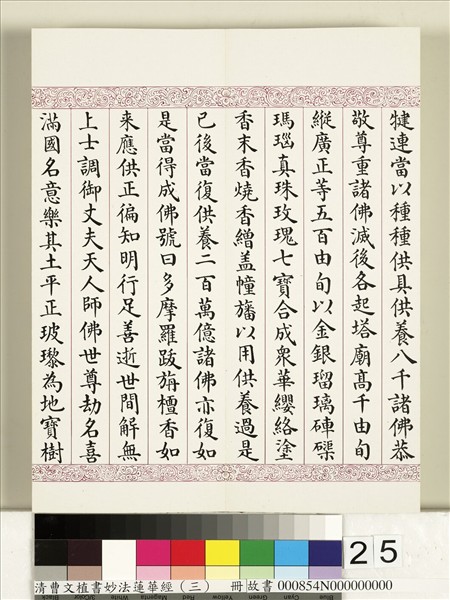 犍連當以種種供具供養八千諸佛恭
敬尊重諸佛滅後各起塔廟高千由旬
縱廣正等五百由旬以金銀瑠璃硨磲
瑪瑙真珠玫瑰七寶合成眾華纓絡塗
香末香燒香繒盖幢旛以用供養過是
已後當復供養二百萬億諸佛亦復如
是當得成佛號曰多摩羅跋旃檀香如
来應供正徧知明行足善逝世間解無
上士調御丈夫天人師佛世尊劫名喜
滿國名意樂其土平正玻瓈為地寶樹
25
清曹文植書妙法蓮華經（三） 冊 故書 000854N000000000
Black 3/Color White Magenta Red Yellow Green Cyan Blue